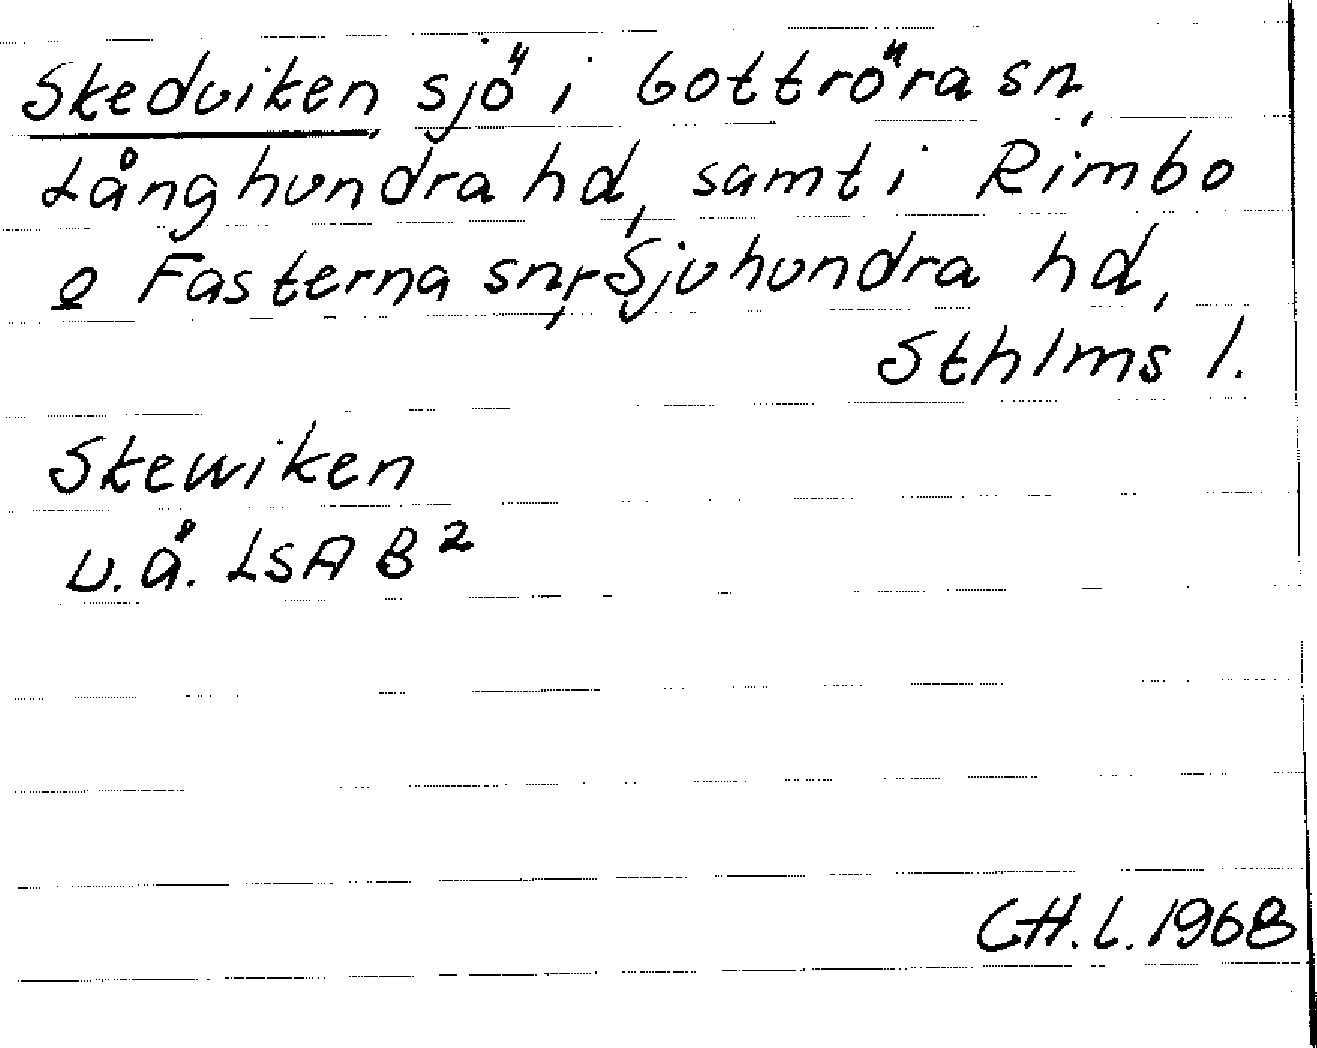 Skedviken, sjö i Gottröra sn,
Långhundra hd, samt i Rimbo
o Fasterna snr, Sjuhundra hd,
Sthlms l.
Skewiken
u.å. LSA B²
CH.L. 1968